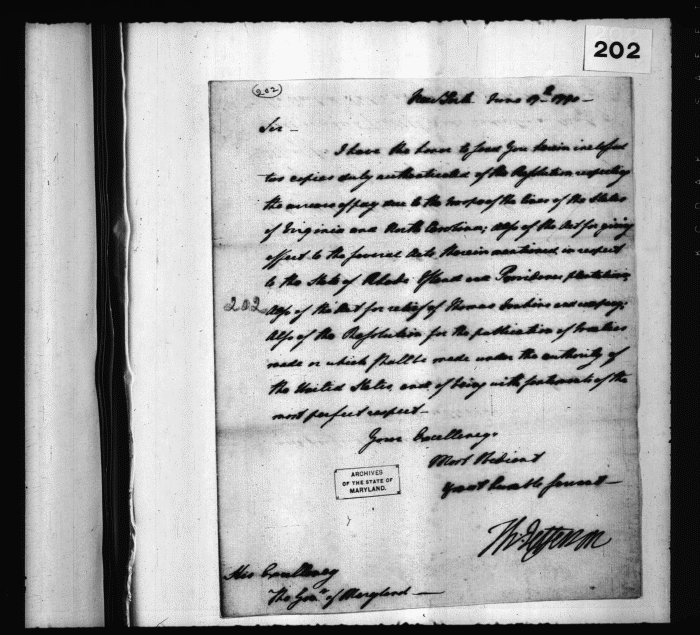 202
202
New York June 17th 1790 —
Sir —
I have the honor to send you herein inclosed
two copies duly authenticated of the Resolution respecting
the arrears of pay due to the troops of the lines of the States
of Virginia and North Carolina; Also of the Act for giving
effect to the several Acts therein mentioned, in respect
to the State of Rhode Island and Providence plantations;
202
Also of the Act for relief of Thomas Jenkins and company;
Also of the Resolution for the publication of treaties
made or which shall be made under the authority of
the United States, and of being with sentiments of the
most perfect respect —
Your Excellency's
Most Obedient
& most humble Servant —
ARCHIVES
OF THE STATE OF
MARYLAND.
Th: Jefferson
His Excellency
The Govr. of Maryland —